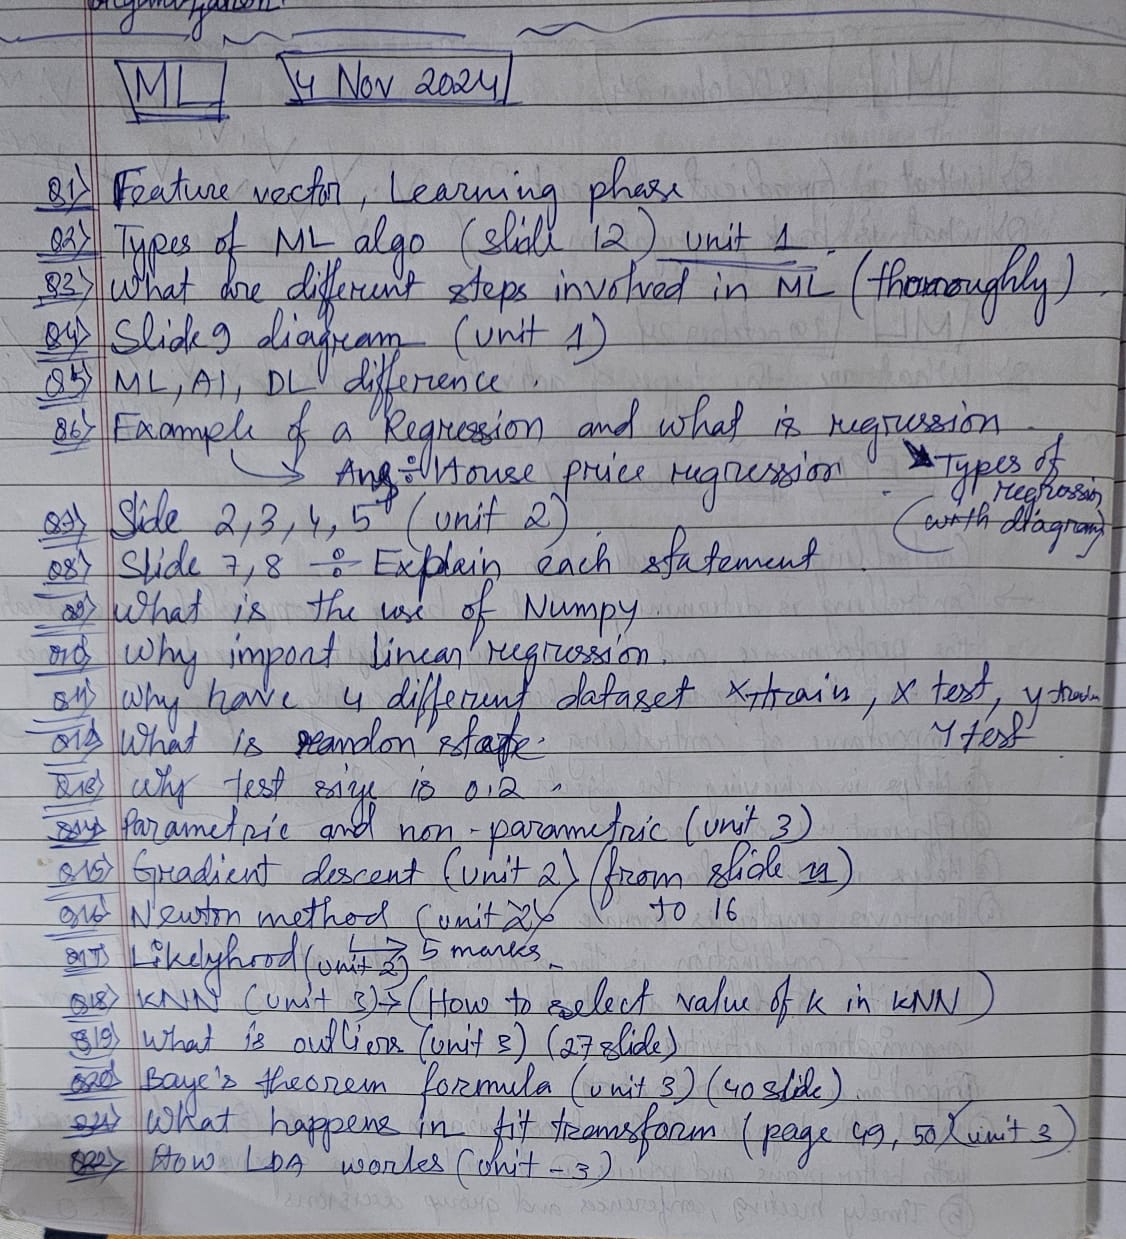 ML 4 Nov 2024
Q1) Feature vector, Learning phase
Q2) Types of ML algo (slide 12) unit 1
Q3) What are different steps involved in ML (thoroughly)
Q4) Slide 9 diagram (unit 1)
Q5) ML, AI, DL difference.
Q6) Example of a Regression and what is regression
Ans ÷ House price regression
Types of
regression
(with diagram)
Q7) Slide 2,3,4,5 (unit 2)
Q8) Slide 7,8 ÷ Explain each statement
Q9) What is the use of Numpy
Q10) Why import linear regression.
Q11) Why have 4 different dataset X train, X test, y train
Y test
Q12) What is random state.
Q13) why test size is 0.2
Q14) Parametric and non-parametric (unit 3)
Q15) Gradient descent (unit 2) (from slide 11)
to 16
Q16) Newton method (unit 2)
Q17) Likelyhood (unit 2) → 5 marks
Q18) KNN (unit 3) → (How to select value of k in KNN)
Q19) What is outliers (unit 3) (27 slide)
Q20) Baye's theorem formula (unit 3) (40 slide)
Q21) What happens in fit transform (page 49, 50) (unit 3)
Q22) How LDA works (unit - 3)